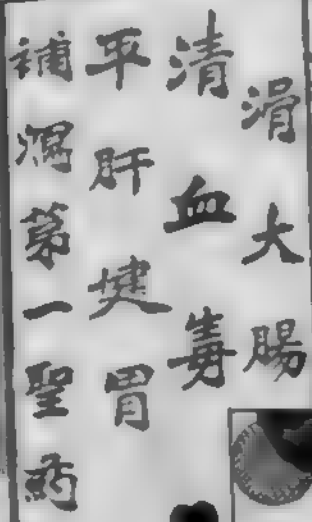 滑大腸
清血毒
平肝健胃
補瀉第一聖藥